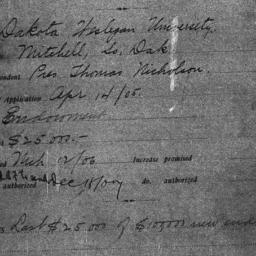 Dakota Wesleyan University.
Mitchell, So. Dak
ondent Pres. Thomas Nicholson.
Application Apr 14/05.
Endowment
$25000.—
Mch 12/06 Increase promised
authorized Dec 18/07 do. authorized
Last $25000 of $100000 new endo